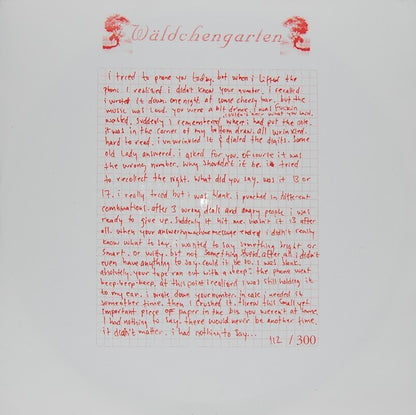 Wäldchengarten
i tried to phone you today. but when i lifted the
phone i realised. i didn't know your number. i recalled
i wrote it down. one night at some cheesy bar. but the
music was loud. you were a bit drunk. i was fuckin
couldn't hear what you said,
wasted. suddenly i remembered where i had put the note.
it was in the corner of my bottom draw. all wrinkled.
hard to read. i unwrinkled it & dialed the digits. Some
old lady answered. i asked for you. of course it was
the wrong number. why shouldn't it be. i tried
to recollect the night. what did you say. was it 13 or
17. i really tried but i was blank. i punched in different
combinations. after 3 wrong dials and angry people i was
ready to give up. Suddenly it hit me. but is it 13 after
all. when your answering machine message ended i didn't really
know what to say. i wanted to say something smart. or
smart. or witty. but not something stupid. after all i didn't
even have anything to say. could it be so. i was blank.
absolutely. your tape ran out with a beep. the phone went
beep-beep-beep. at this point i realised i was still holding it
to my ear. i wrote down your number. in case i needed it
some other time. then i crushed it. threw this small yet
important piece of paper in the bin. you weren't at home.
i had nothing to say. there would never be another time.
it didn't matter. i had nothing to say...
112 / 300